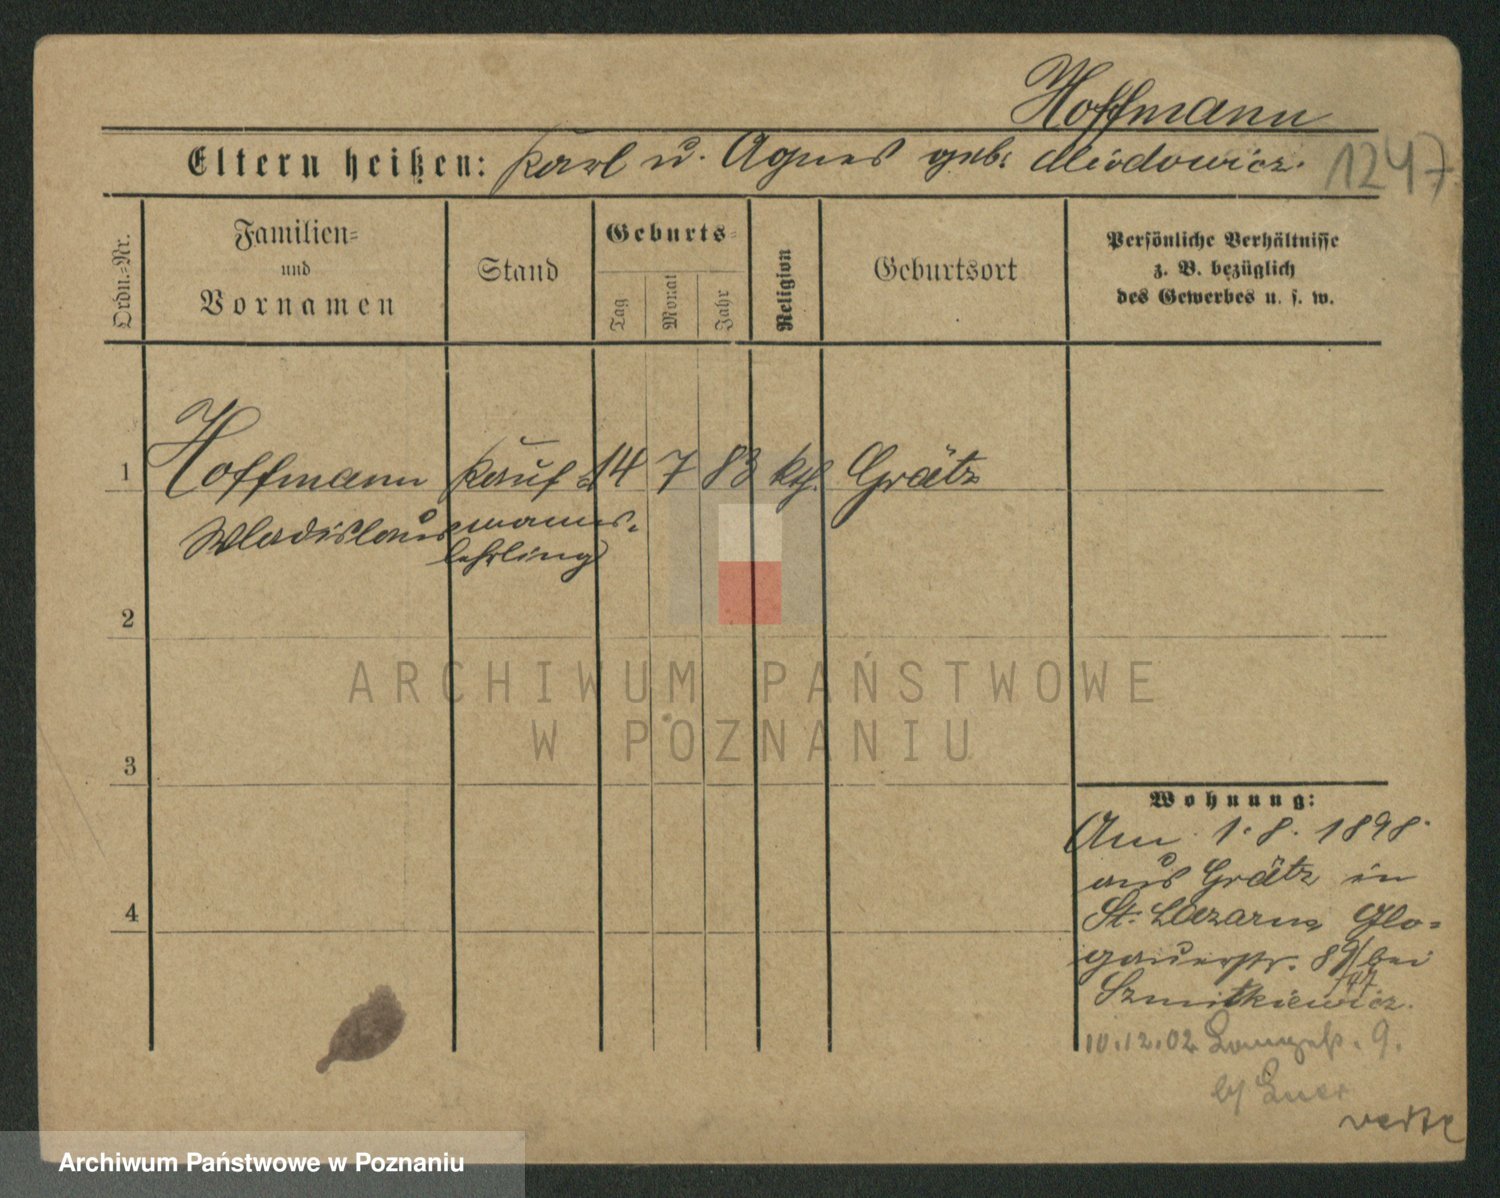 Hoffmann
Eltern heißen: Karl u. Agnes geb. Miodowicz.
1247
Ordn.-Nr.
Familien-
und
Vornamen
Stand
Geburts-
Tag
Monat
Jahr
Religion
Geburtsort
Persönliche Verhältnisse
z. B. bezüglich
des Gewerbes u. s. w.
1 Hoffmann Kauf 14 7 83 kth. Grätz
Wladislaus manns-
lehrling
2
3
4
Wohnung:
Am 1.8.1898.
aus Grätz in
St. Lazarus Glo-
gauerstr. 89/ bei
Szmitkiewicz.
10.12.02 Langestr. 9.
b/
verte
ARCHIWUM PAŃSTWOWE
W POZNANIU
Archiwum Państwowe w Poznaniu